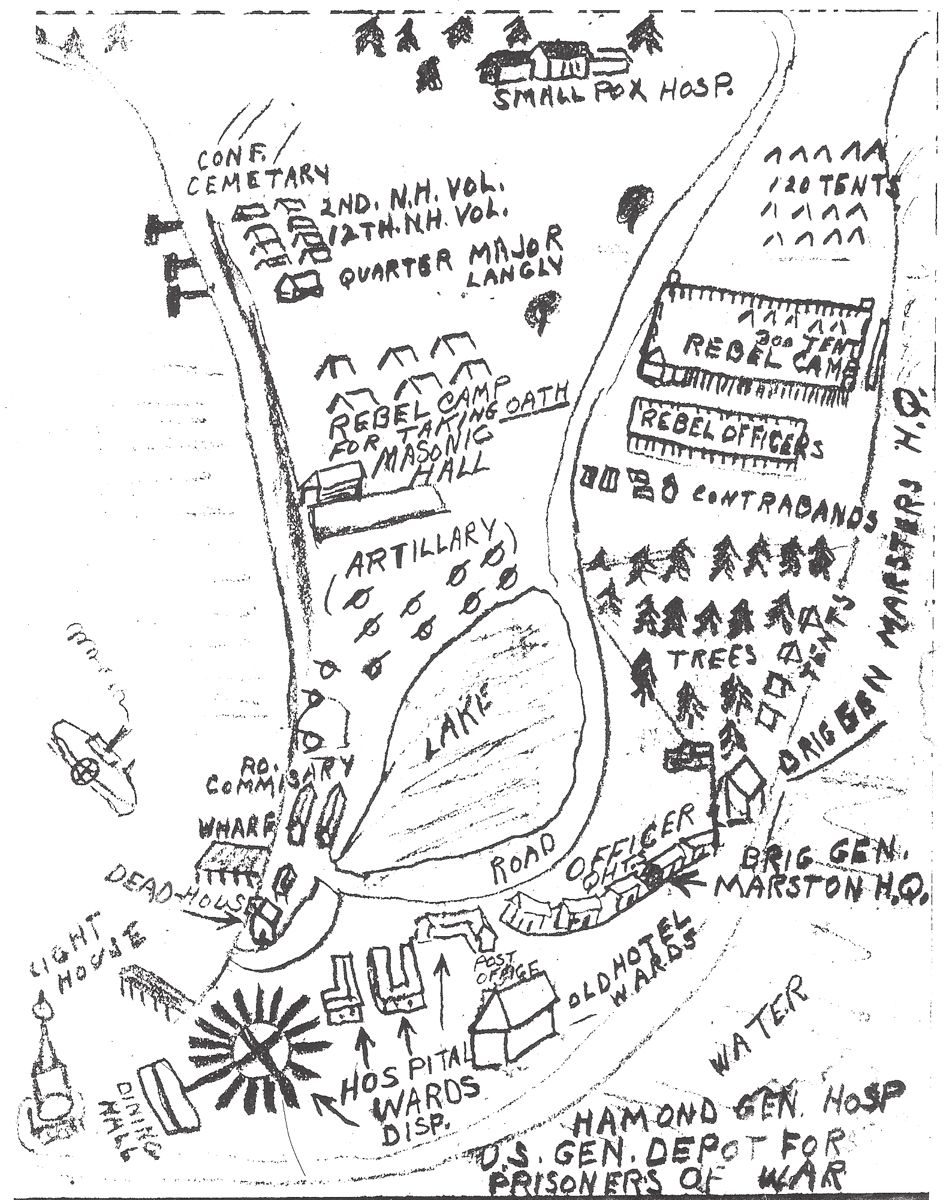 SMALL POX HOSP.
CONF.
CEMETARY
2ND. N.H. VOL.
12TH. N.H. VOL.
QUARTER MAJOR
LANGLY
120 TENTS
300 TENT
REBEL CAMP
REBEL OFFICERS
CONTRABANDS
REBEL CAMP
FOR TAKING OATH
MASONIC
HALL
(ARTILLARY)
TREES
TENTS
BRIG GEN MARSTERS H.Q.
LAKE
RO.
COMMISARY
WHARF
DEAD-HOUSE
ROAD
OFFICER
QHTS
BRIG GEN.
MARSTON H.Q.
LIGHT
HOUSE
POST
OFFICE
OLD HOTEL
WARDS
WATER
DINING
HALL
HOSPITAL
WARDS
DISP.
HAMOND GEN. HOSP
U.S. GEN. DEPOT FOR
PRISONERS OF WAR